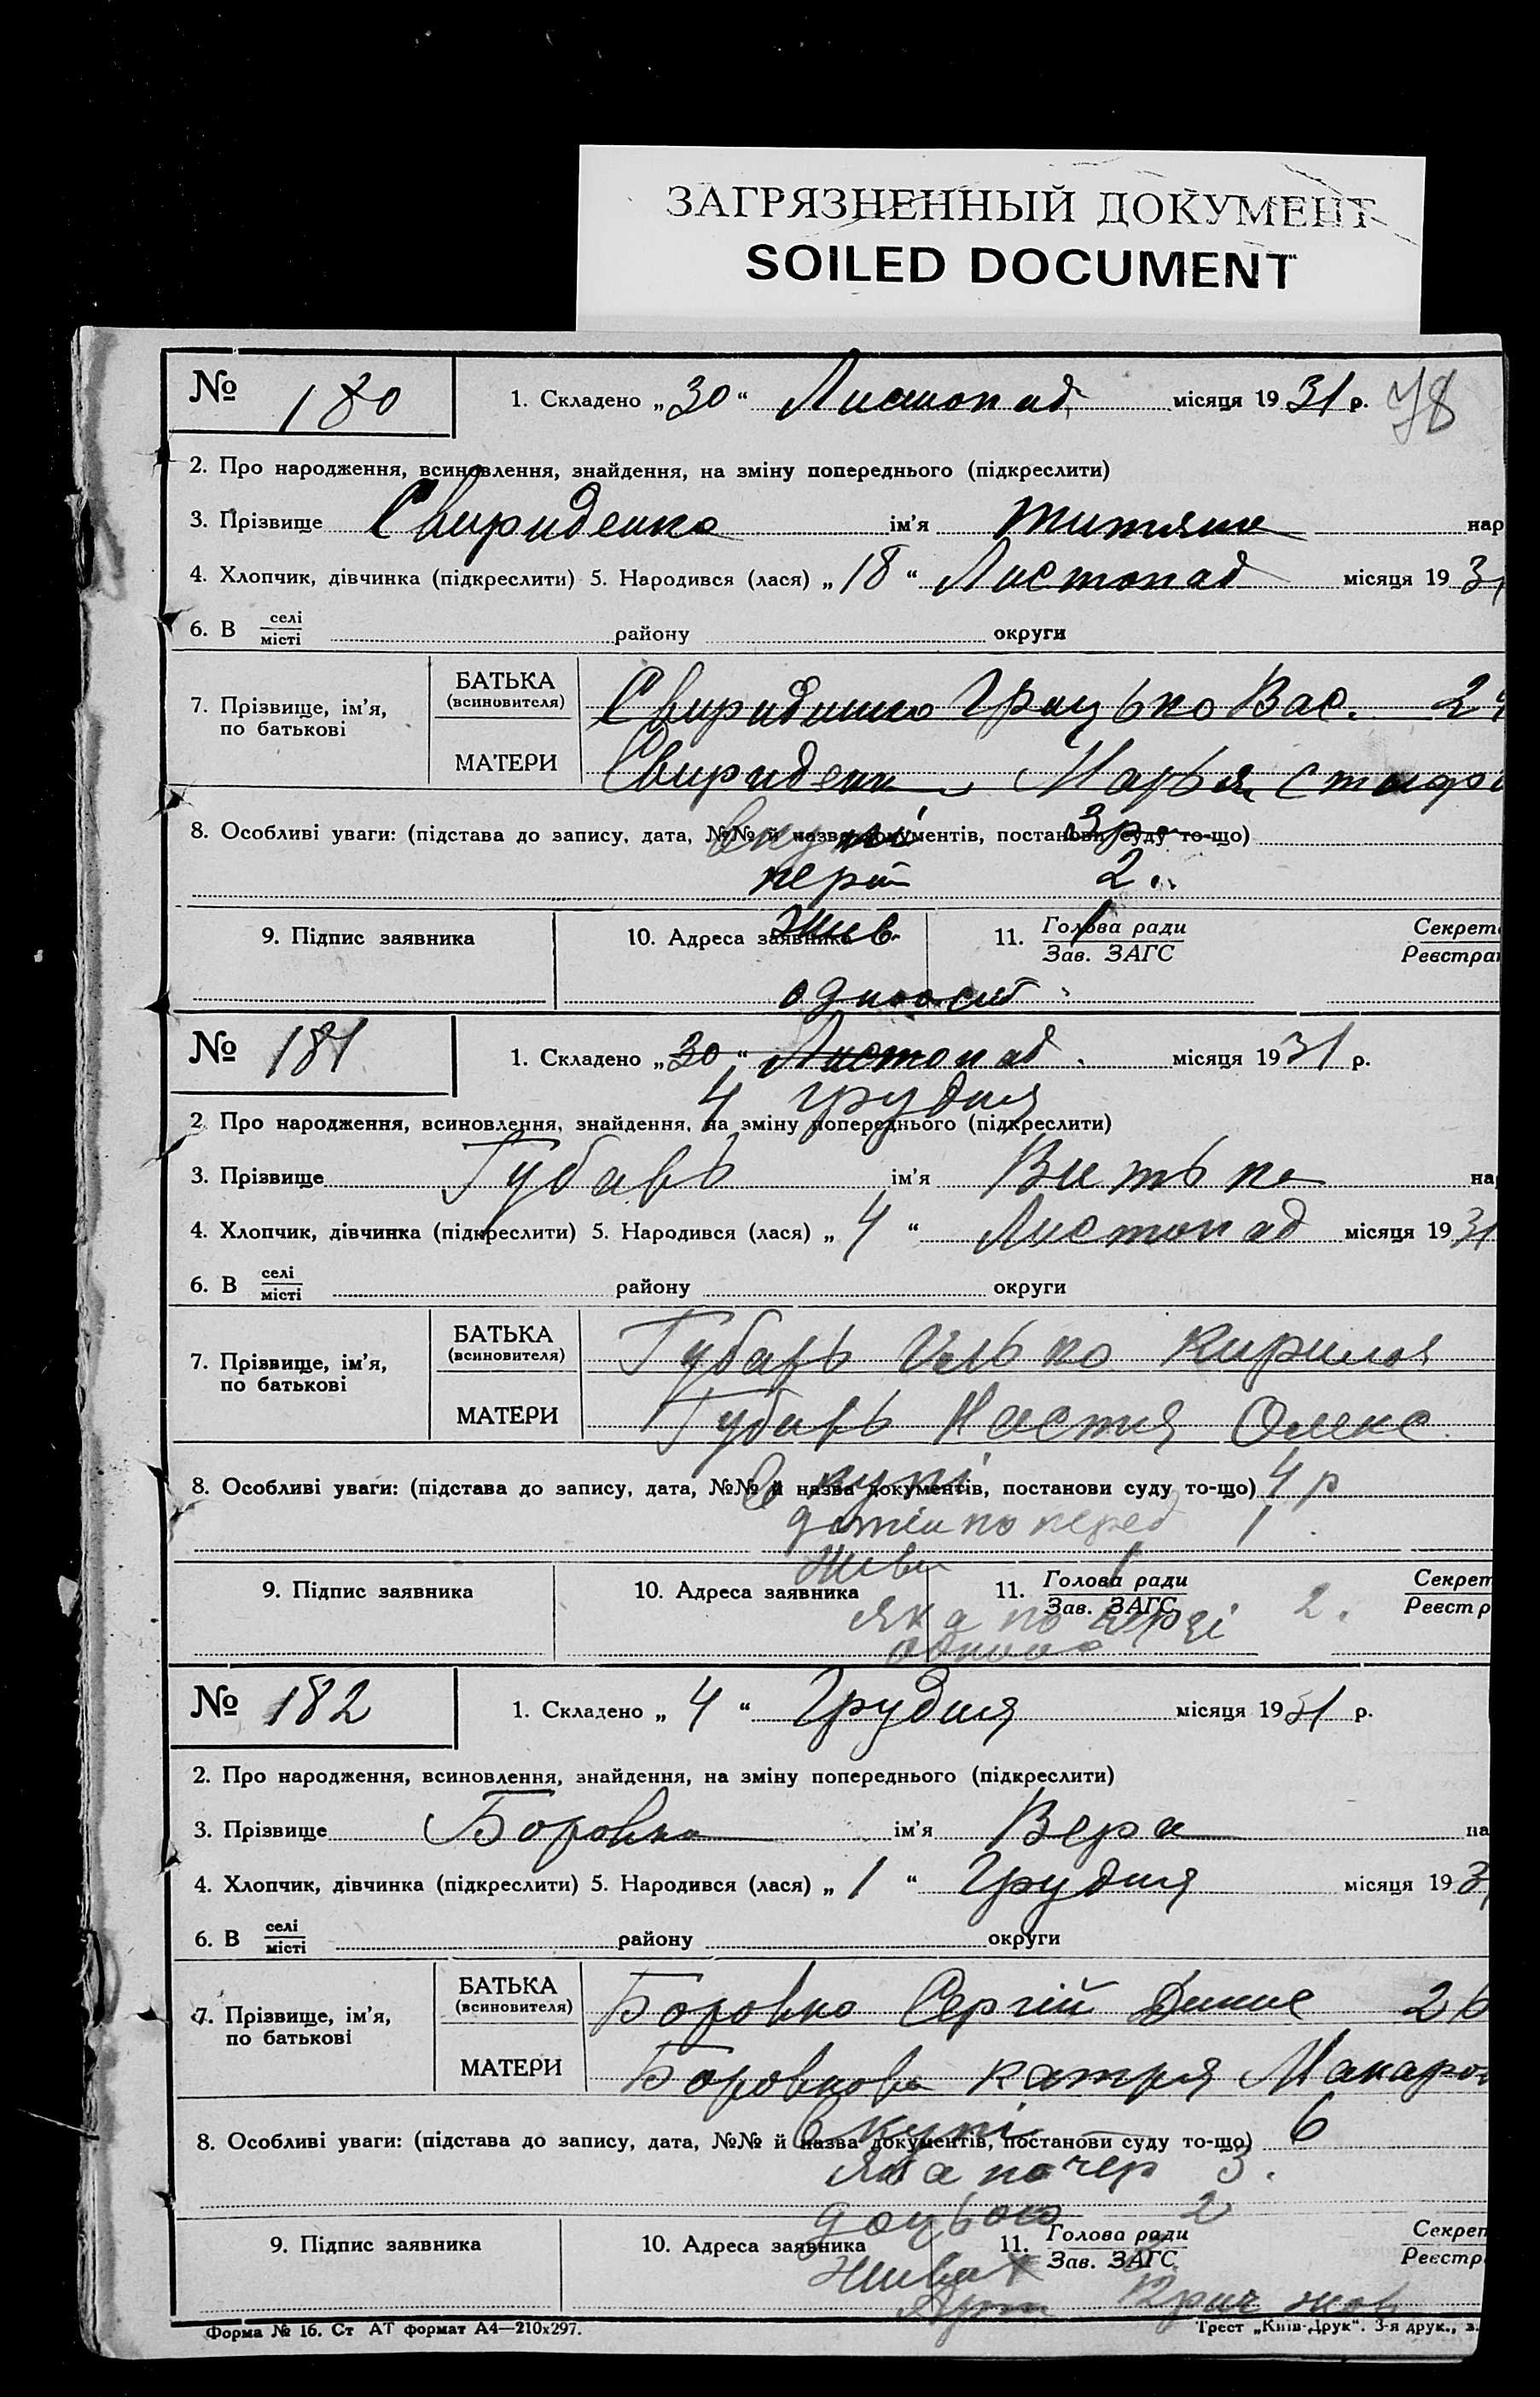 ЗАГРЯЗНЕННЫЙ ДОКУМЕНТ
SOILED DOCUMENT
№ 180 1. Складено „30“ Листопад місяця 1931 р. 78
2. Про народження, всиновлення, знайдення, на зміну попереднього (підкреслити)
3. Прізвище Свириденко ім’я нар
4. Хлопчик, дівчинка (підкреслити) 5. Народився (лася) „18“ Листопад місяця 193
6. В селі місті району округи
7. Прізвище, ім’я, по батькові
БАТЬКА (всиновителя) Свириденко Грицько Вас. 24
МАТЕРИ Свириденк Марья
8. Особливі уваги: (підстава до запису, дата, №№ й назва документів, постанови суду то-що) вкупі 3 р
2
9. Підпис заявника 10. Адреса заявника жив. 11. Голова ради Зав. ЗАГС 1 Секрет Реєстра
одноосіб
№ 181 1. Складено „30“ Листопад. місяця 1931 р.
4 грудня
2 Про народження, всиновлення, знайдення, на зміну попереднього (підкреслити)
3. Прізвище Губарь ім’я Витька на
4. Хлопчик, дівчинка (підкреслити) 5. Народився (лася) „4“ Листопад місяця 1931
6. В селі місті району округи
7. Прізвище, ім’я, по батькові
БАТЬКА (всиновителя) Губарь Илько Кирилов
МАТЕРИ Губарь Настия Олекс
8. Особливі уваги: (підстава до запису, дата, №№ й назва документів, постанови суду то-що) вкупі 4 р
перед 1
живи 1
9. Підпис заявника 10. Адреса заявника 11. Голова ради Зав. ЗАГС Секрет Реєстр
яка по черзі 2.
№ 182 1. Складено „4“ Грудня місяця 1931 р.
2. Про народження, всиновлення, знайдення, на зміну попереднього (підкреслити)
3. Прізвище Боровко ім’я Вера на
4. Хлопчик, дівчинка (підкреслити) 5. Народився (лася) „1“ Грудня місяця 193
6. В селі місті району округи
7. Прізвище, ім’я, по батькові
БАТЬКА (всиновителя) Боровко Сергій Денис 26
МАТЕРИ Боровкова Катря Макаров
8. Особливі уваги: (підстава до запису, дата, №№ й назва документів, постанови суду то-що) вкупі 6
яка по чер 3.
2
9. Підпис заявника 10. Адреса заявника 11. Голова ради Зав. ЗАГС Секрет Реєстр
жива
Форма № 16. Ст АТ формат А4—210х297. Трест „Київ-Друк“. 3-я друк., з.